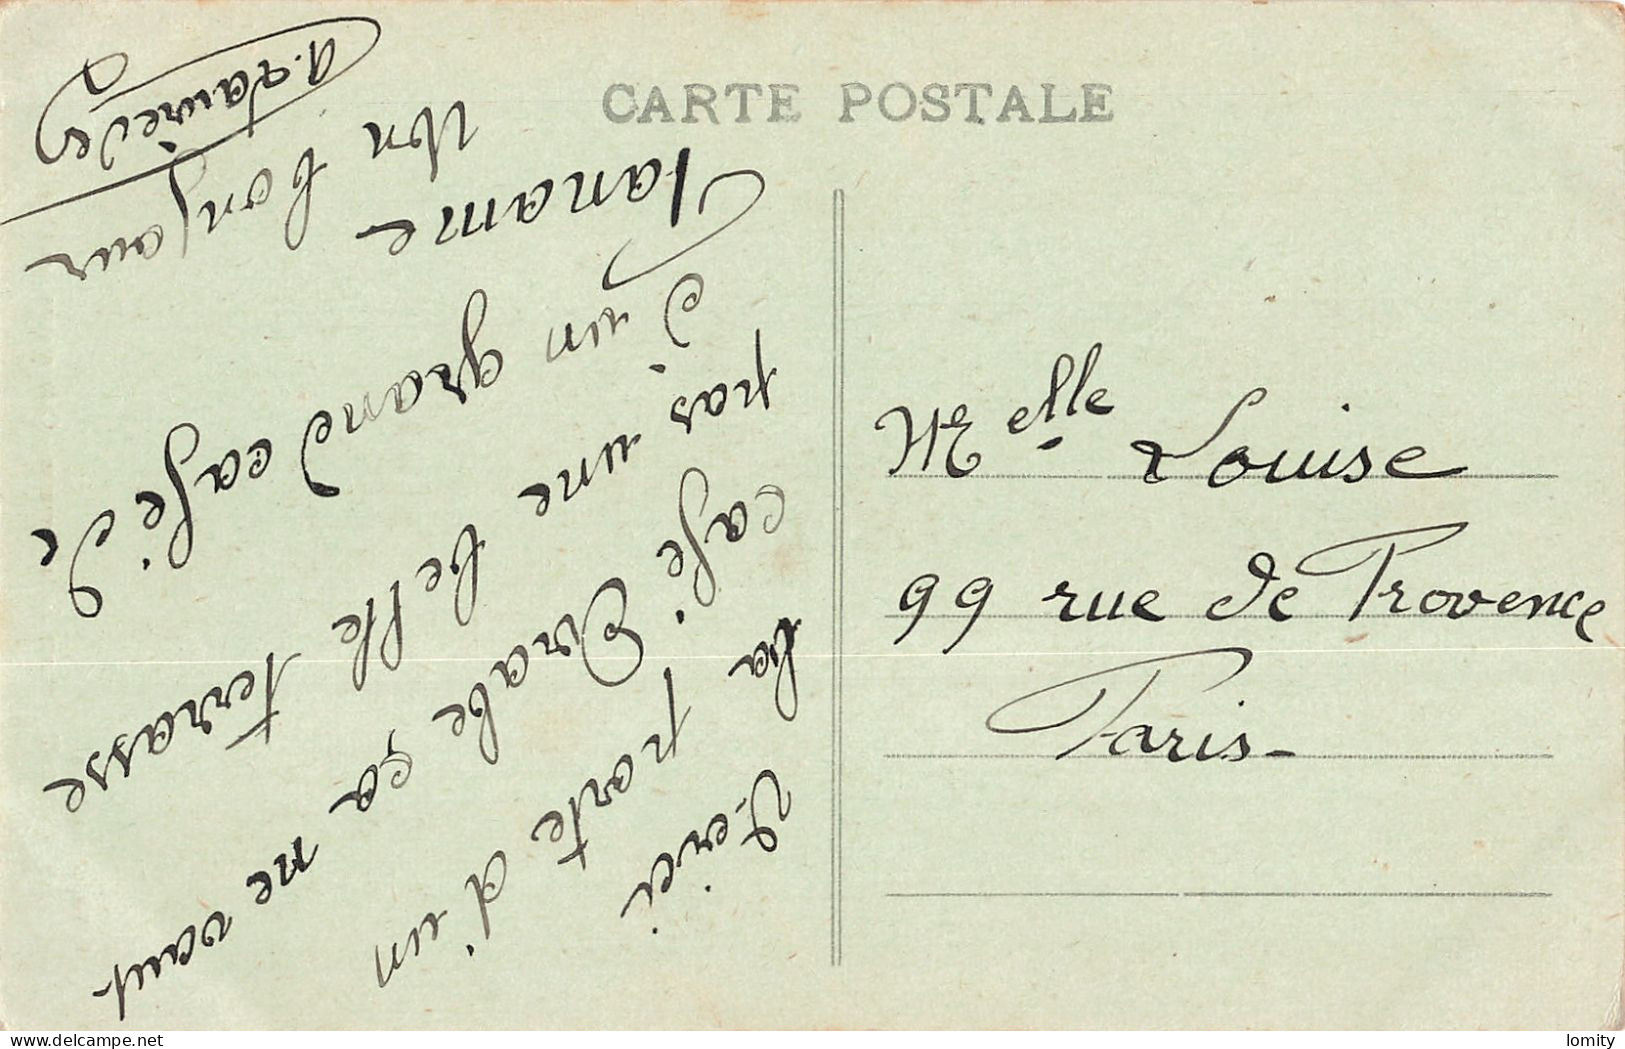 CARTE POSTALE
V. erici
la porte d'un
café Arabe ça ne vaut
pas une belle terasse
d'un grand café de
Paname
Un bonjour
Melle Louise
99 rue de Provence
Paris-
delcampe.net
lomity